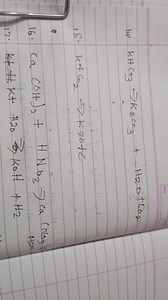 14. KHCO3 → K2CO3 + H2O + CO2
15. K + CO2 → K2O + C
16. Ca(OH)2 + HNO3 → Ca(NO3)2
17. K + H2O → KOH + H2